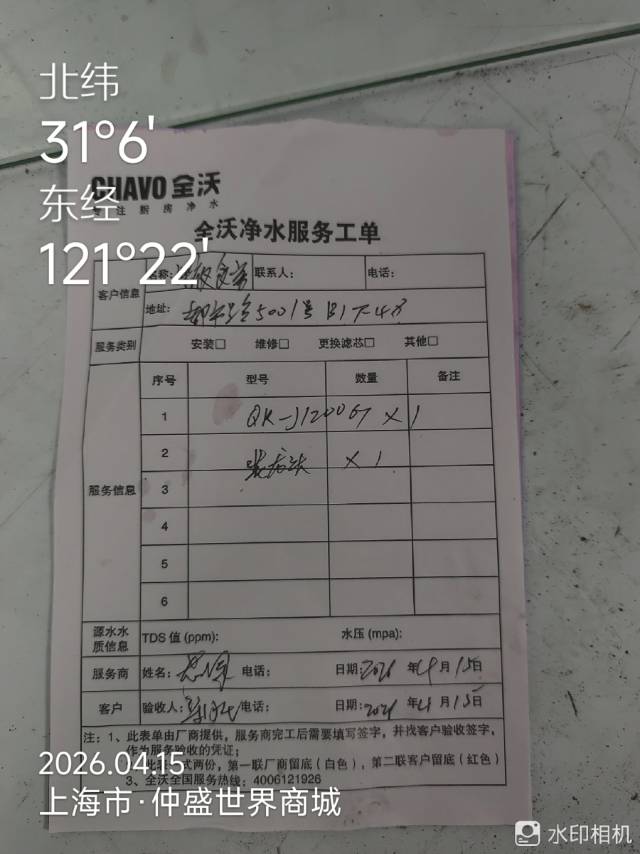 北纬
31°6'
东经
121°22'
CHAVO 全沃
专注厨房净水
全沃净水服务工单
客户信息 名称: 联系人: 电话:
地址: 5001号 B1
服务类别 安装□ 维修□ 更换滤芯□ 其他□
服务信息 序号 型号 数量 备注
1 QK-J1200G ×1
2 龙头 ×1
3
4
5
6
源水水质信息 TDS 值 (ppm): 水压 (mpa):
服务商 姓名: 电话: 日期: 2026 年 4 月 15 日
客户 验收人: 电话: 日期: 2026 年 4 月 15 日
注: 1、此表单由厂商提供, 服务商完工后需要填写签字, 并找客户验收签字,
作为服务验收的凭证;
式两份, 第一联厂商留底 (白色), 第二联客户留底 (红色)
3、全沃全国服务热线: 4006121926
2026.04.15
上海市·仲盛世界商城
水印相机